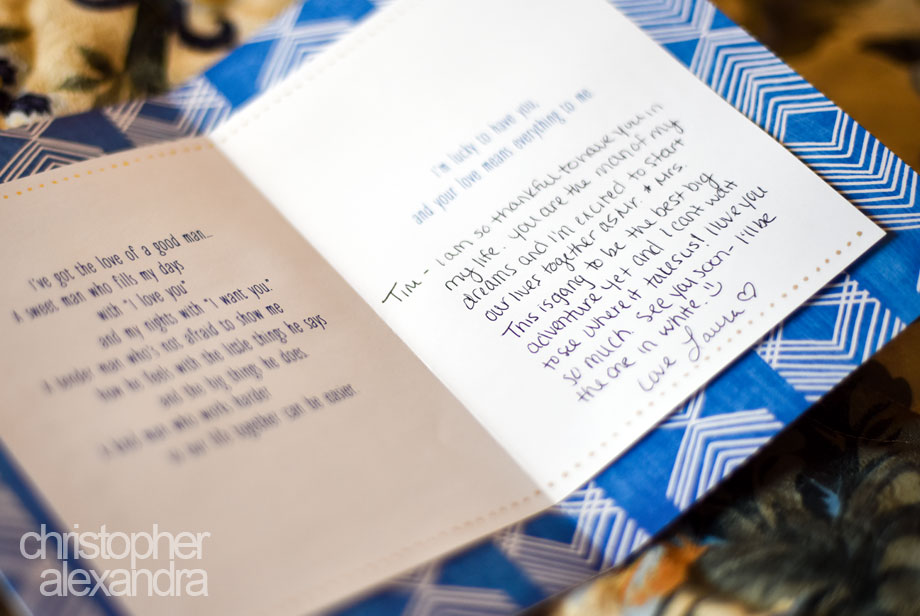 I've got the love of a good man...
A sweet man who fills my days
with "I love you"
and my nights with "I want you."
A tender man who's not afraid to show me
how he feels with the little things he says
and the big things he does.
A hard man who works harder
so our life together can be easier.
I'm lucky to have you,
and your love means everything to me.
Tim - I am so thankful to have you in
my life. You are the man of my
dreams and I'm excited to start
our lives together as Mr. + Mrs.
This is going to be the best big
adventure yet and I cant wait
to see where it takes us! I love you
so much. See you soon - I'll be
the one in white. :)
Love Laura ♡
christopher
alexandra